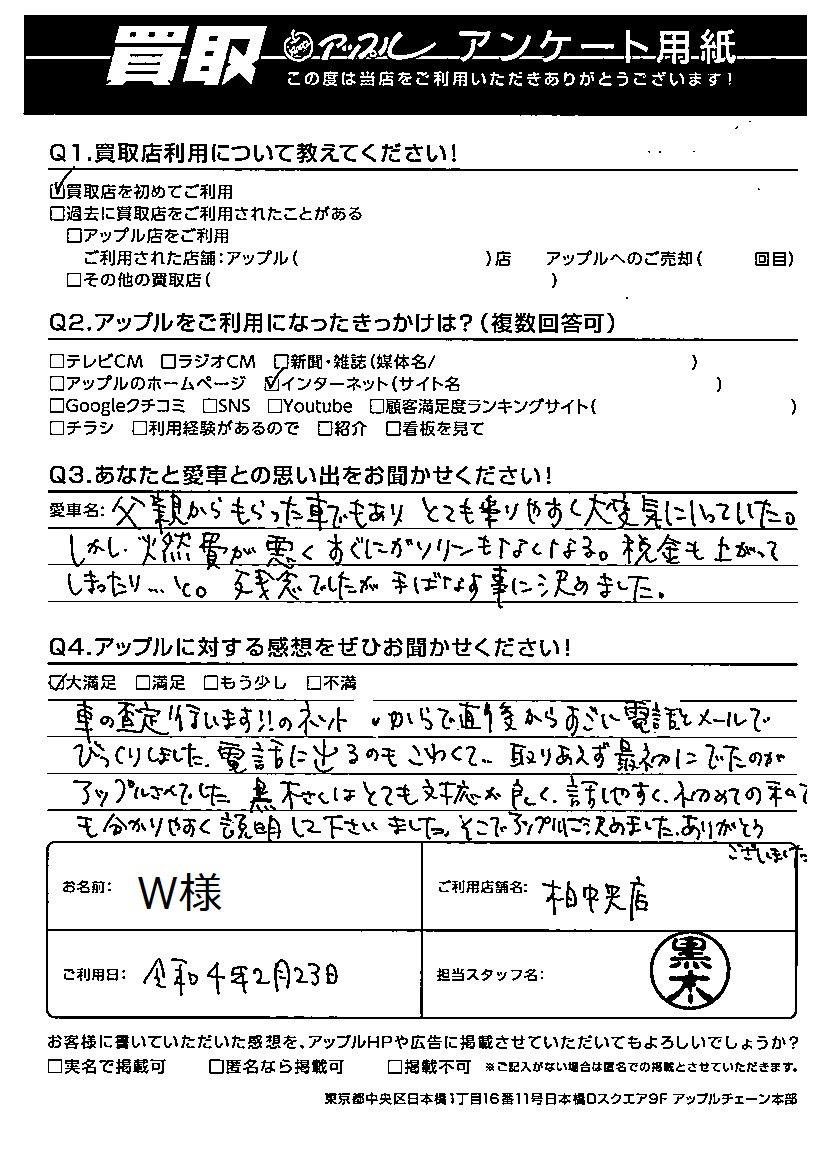 買取 アップル アンケート用紙
この度は当店をご利用いただきありがとうございます!
Q1.買取店利用について教えてください!
☑買取店を初めてご利用
□過去に買取店をご利用されたことがある
□アップル店をご利用
ご利用された店舗:アップル( )店 アップルへのご売却( 回目)
□その他の買取店( )
Q2.アップルをご利用になったきっかけは?(複数回答可)
□テレビCM □ラジオCM □新聞・雑誌(媒体名/ )
□アップルのホームページ ☑インターネット(サイト名 )
□Googleクチコミ □SNS □Youtube □顧客満足度ランキングサイト( )
□チラシ □利用経験があるので □紹介 □看板を見て
Q3.あなたと愛車との思い出をお聞かせください!
愛車名: 父親からもらった車でもあり とても乗りやすく大変気にいっていた。
しかし 燃費が悪く すぐにガソリンもなくなる。税金も上がって
しまったり…と。 残念でしたが手ばなす事に決めました。
Q4.アップルに対する感想をぜひお聞かせください!
☑大満足 □満足 □もう少し □不満
車の査定行います!!のネット からで直後からすごい電話とメールで
びっくりしました。電話に出るのもこわくて… 取りあえず最初にでたのが
アップルさんでした 黒木さんはとても対応が良く、話しやすく、初めての私で
も分かりやすく説明して下さいました。そこでアップルに決めました。ありがとう
ございました
お名前: W様 ご利用店舗名: 柏中央店
ご利用日: 令和4年2月23日 担当スタッフ名: 黒木
お客様に書いていただいた感想を、アップルHPや広告に掲載させていただいてもよろしいでしょうか?
□実名で掲載可 □匿名なら掲載可 □掲載不可 ※ご記入がない場合は匿名での掲載とさせていただきます。
東京都中央区日本橋1丁目16番11号日本橋Dスクエア9F アップルチェーン本部